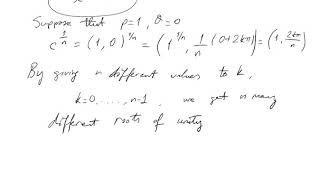 Suppose that ρ=1, ϑ=0
c^{1/n} = (1, 0)^{1/n} = (1^{1/n}, 1/n (0+2kπ)) = (1, 2kπ/n)
By giving n different values to k,
k=0, ..., n-1, we get n many
different roots of unity